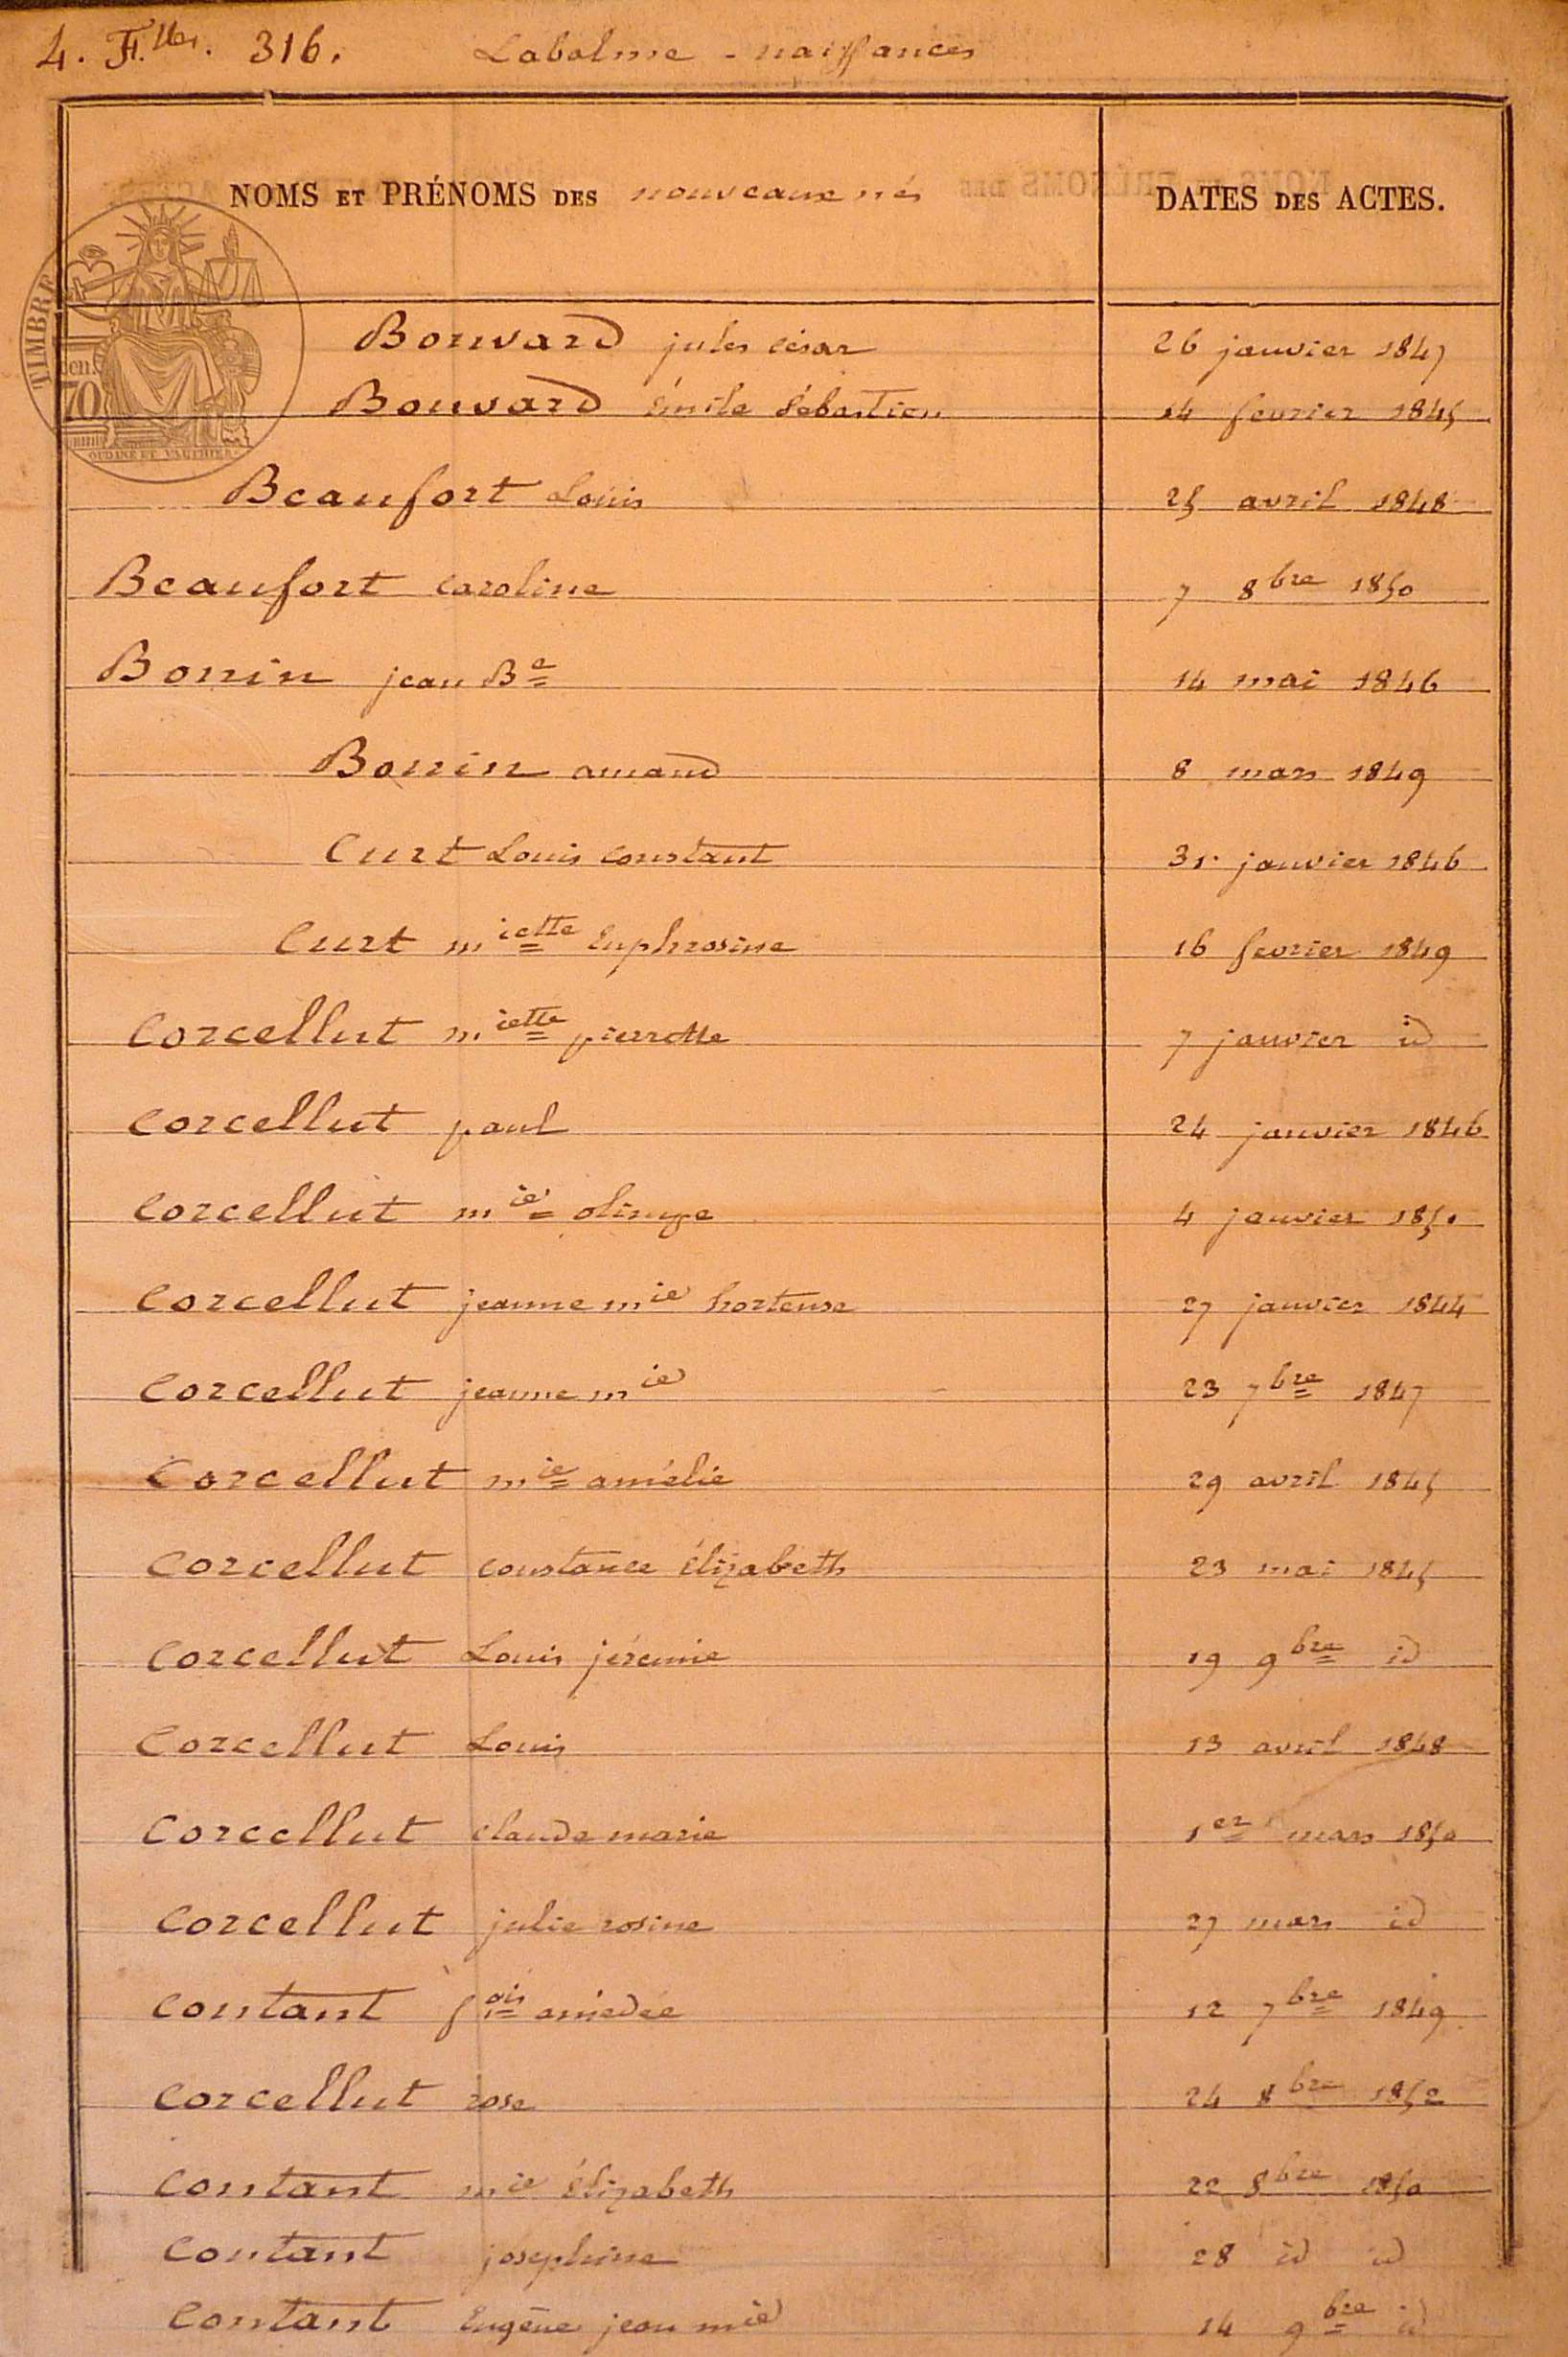 4. F.lles. 316. Labalme - naissances
NOMS ET PRÉNOMS DES nouveaux nés DATES DES ACTES.
TIMBRE
70
OUDINE ET VAUTHIER
Bouvard jules césar 26 janvier 1847
Bouvard émile sébastien 14 fevrier 1845
Beaufort Louis 25 avril 1848
Beaufort caroline 7 8bre 1850
Bonin jean Bte 14 mai 1846
Bonin amand 8 mars 1849
Curt Louis constant 31. janvier 1846
Curt miette Euphrosine 16 fevrier 1849
Corcellut miette pierrotte 7 janvier id
Corcellut paul 24 janvier 1846
Corcellut mie olimpe 4 janvier 1850
Corcellut jeanne mie hortense 27 janvier 1844
Corcellut jeanne mie 23 7bre 1847
Corcellut mie amélie 29 avril 1845
Corcellut constance élizabeth 23 mai 1845
Corcellut Louis jéremie 19 9bre id
Corcellut Louis 13 avril 1848
Corcellut claude marie 1er mars 1850
Corcellut julie rosine 27 mars id
Contant fois amedée 12 7bre 1849
Corcellut rose 24 8bre 1852
Contant mie Élizabeth 22 8bre 1850
Contant josephine 28 id id
Contant Eugène jean mie 14 9bre id